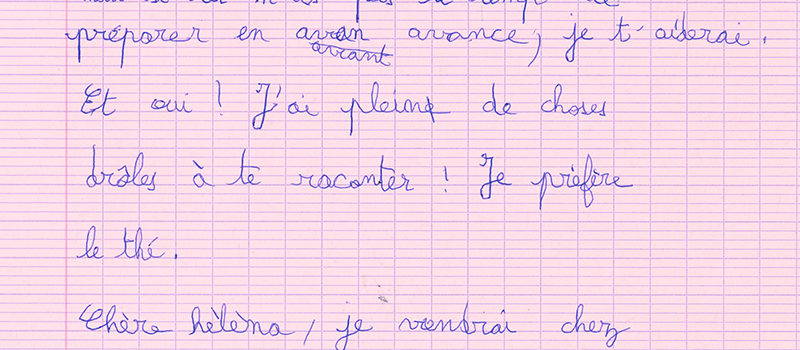 préparer en avan avance, je t'aiderai.
avant
Et oui ! J'ai pleins de choses
drôles à te raconter ! Je préfère
le thé.
Chère hèlèna, je viendrai chez